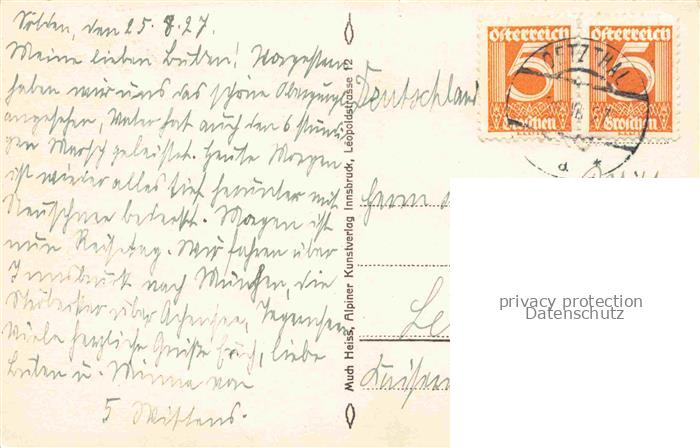 Sölden, den 25.8.27.
Meine lieben Buben! Vorgestern
haben wir uns das schöne
angesehen, Vater hat auch den 6 stündi-
gen Marsch geleistet. Heute Morgen
ist wieder alles tief herunter mit
Neuschnee bedeckt. Morgen ist
nun Reisetag. Wir fahren über
Innsbruck nach München, die
über Achensee, Tegernsee.
Viele herzliche Grüße Euch, liebe
Buben u. Minna von
5 Wittens.
Much Heiss, Alpiner Kunstverlag Innsbruck, Leopoldstrasse 12
Österreich
5
Groschen
Österreich
5
Groschen
OETZTHAL
Deutschland
Herrn
Le
Kaiser
privacy protection
Datenschutz